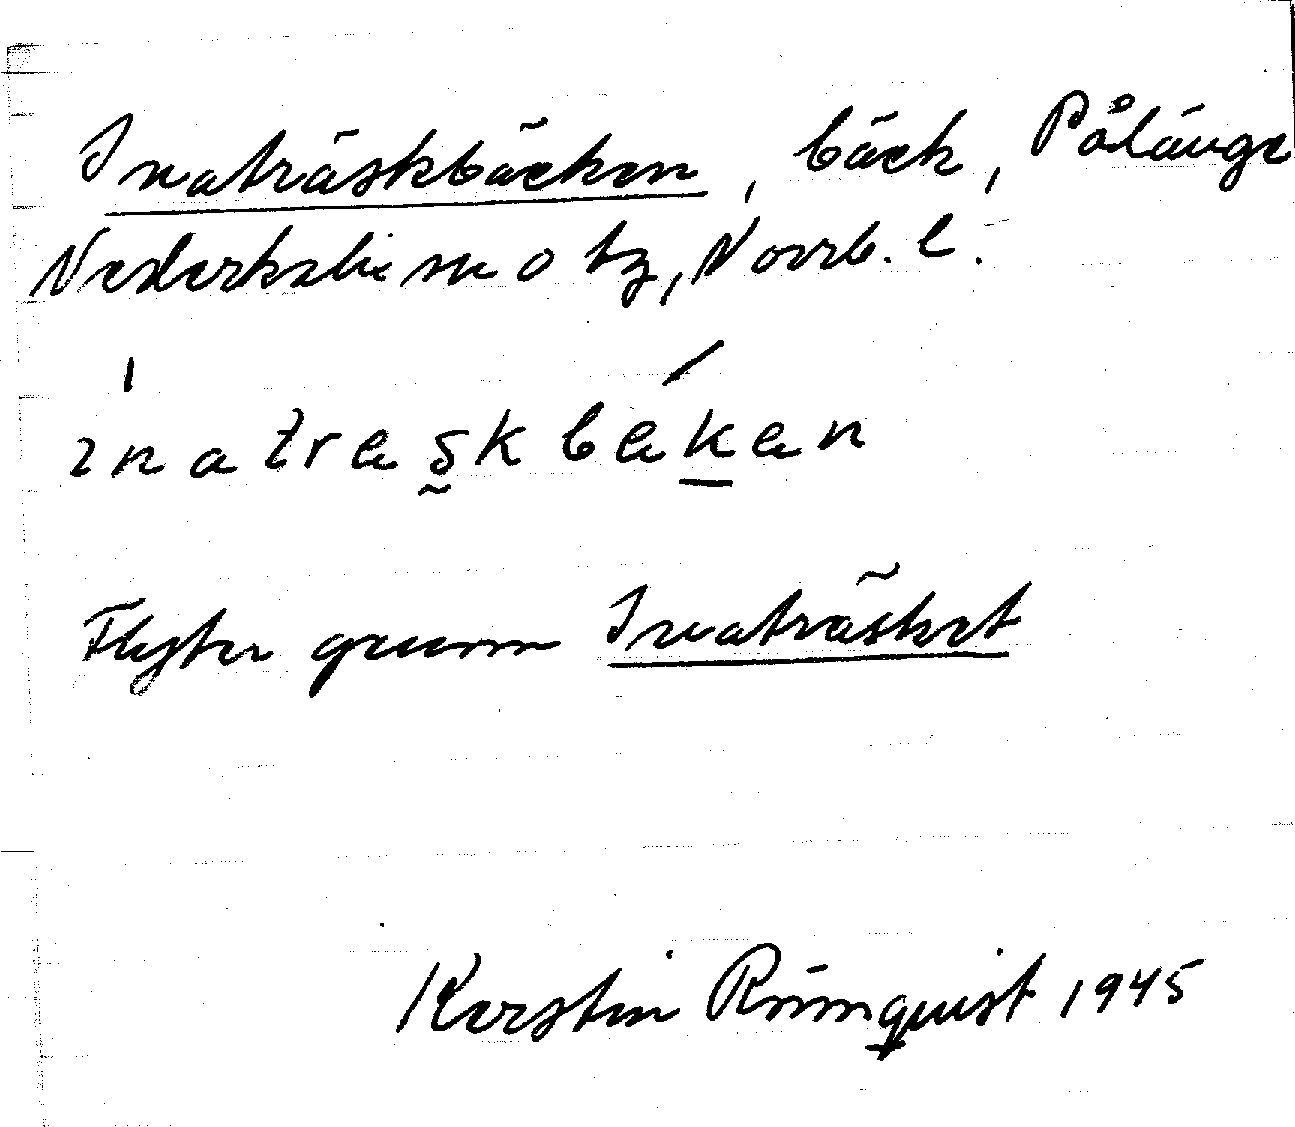 Inaträskbäcken, bäck, Pålänge
Nederkalix sn o tg, Norrb. l.
ınatreskbeken
Flyter genom Inaträsket
Kerstin Rönnquist 1945